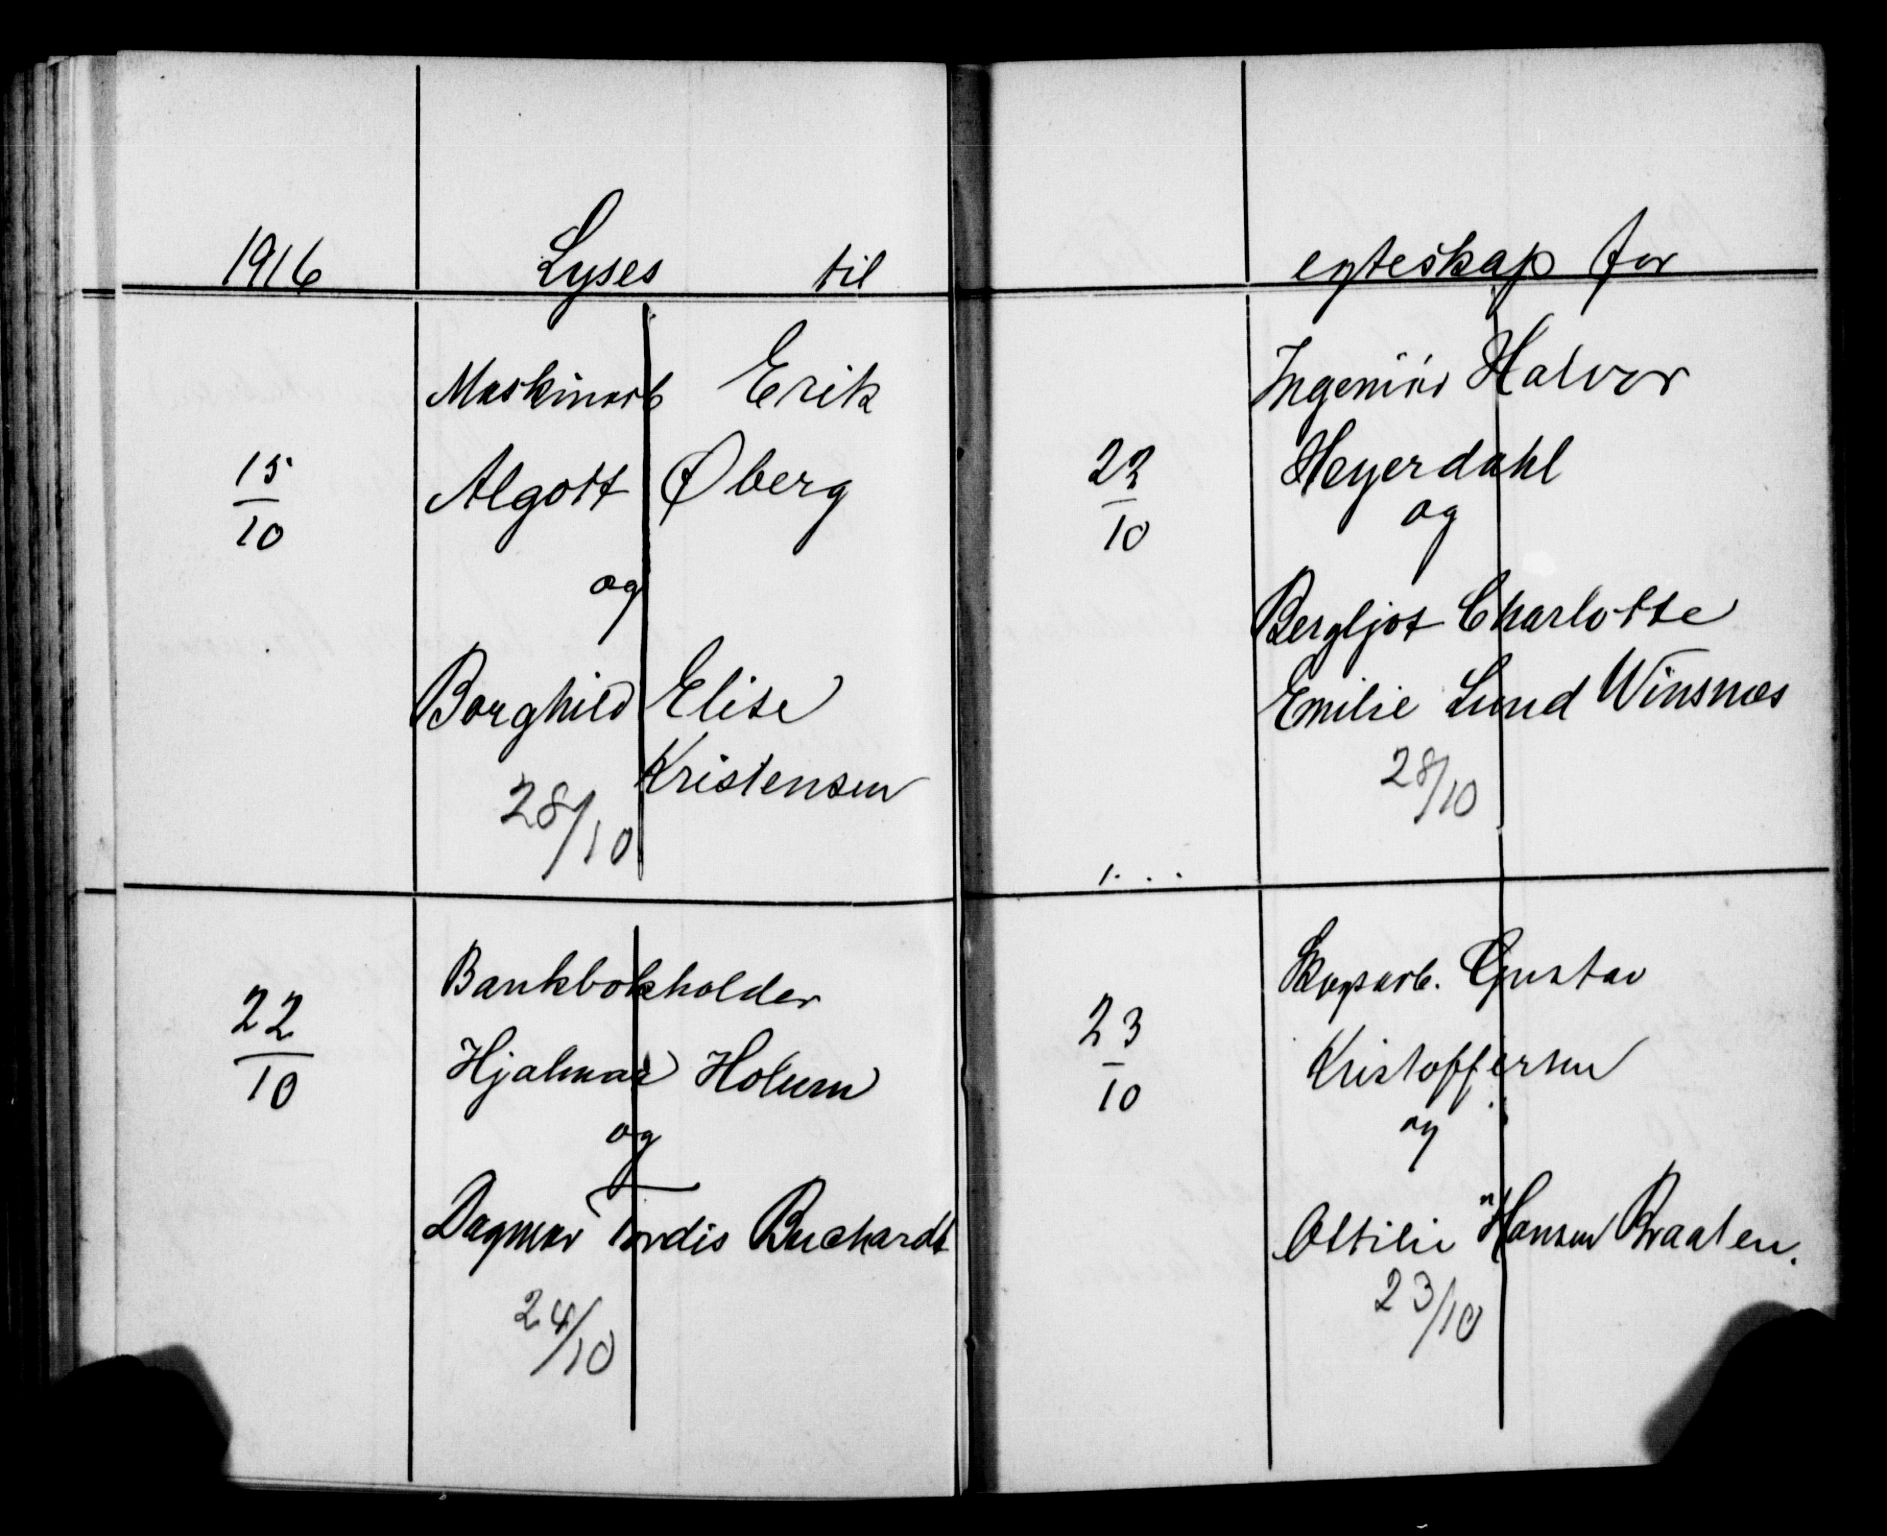 1916 Lyses til
Maskinarb Erik
15/10 Algott Øberg
og
Borghild Elise
Kristensen
28/10
Bankbokholder
22/10 Hjalmar Holum
og
Dagmar Tordis Buchardt
24/10
egteskap for
Ingeniör Halvor
22/10 Heyerdahl
og
Bergljot Charlotte
Emilie Lund Winsnes
28/10
Skogsarb. Gustav
23/10 Kristoffersen
og
Ottilie Hansen Braaten.
23/10